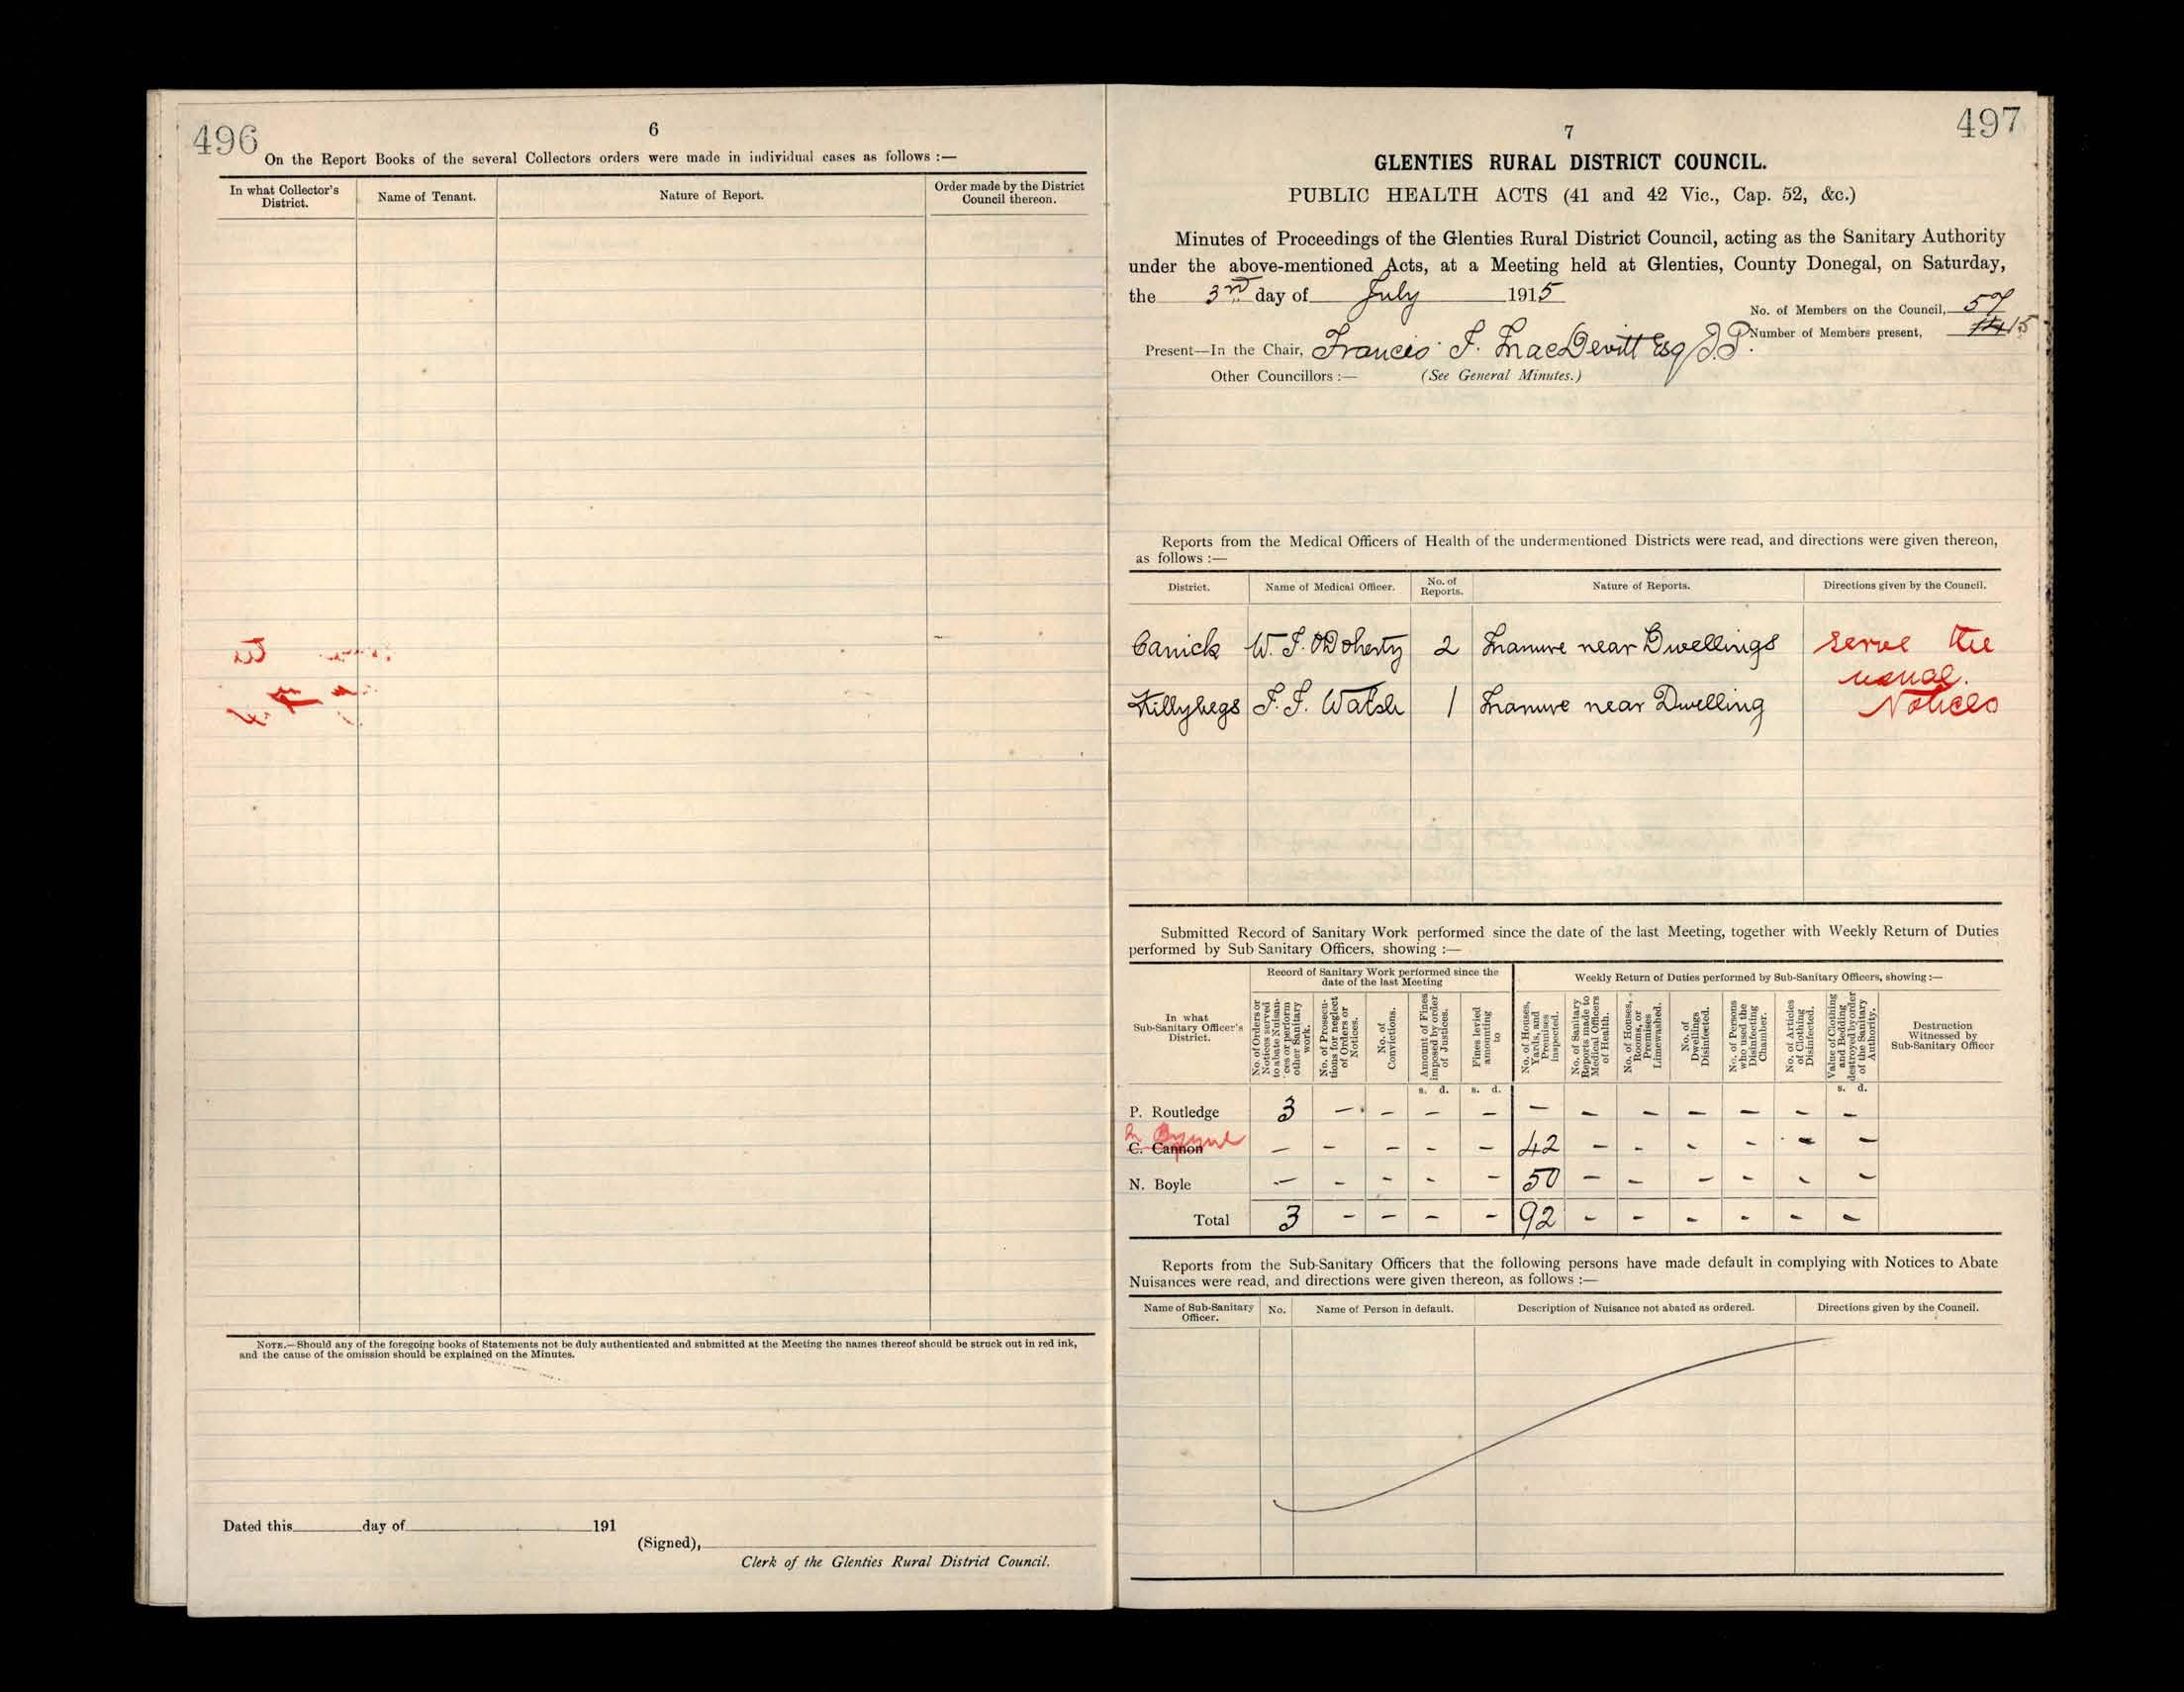 496
6
On the Report Books of the several Collectors orders were made in individual cases as follows :—
In what Collector's District.
Name of Tenant.
Nature of Report.
Order made by the District Council thereon.
NOTE.—Should any of the foregoing books of Statements not be duly authenticated and submitted at the Meeting the names thereof should be struck out in red ink,
and the cause of the omission should be explained on the Minutes.
Dated this day of 191
(Signed),
Clerk of the Glenties Rural District Council.
497
7
GLENTIES RURAL DISTRICT COUNCIL.
PUBLIC HEALTH ACTS (41 and 42 Vic., Cap. 52, &c.)
Minutes of Proceedings of the Glenties Rural District Council, acting as the Sanitary Authority
under the above-mentioned Acts, at a Meeting held at Glenties, County Donegal, on Saturday,
the 3rd day of July 1915
No. of Members on the Council, 57
Number of Members present, 15
Present—In the Chair, Francis J. MacDevitt Esq J.P.
Other Councillors :— (See General Minutes.)
Reports from the Medical Officers of Health of the undermentioned Districts were read, and directions were given thereon,
as follows :—
District. Name of Medical Officer. No. of Reports. Nature of Reports. Directions given by the Council.
Carrick W. J. O'Doherty 2 Manure near Dwellings serve the
usual.
Killybegs J. J. Walsh 1 Manure near Dwelling Notices
Submitted Record of Sanitary Work performed since the date of the last Meeting, together with Weekly Return of Duties
performed by Sub Sanitary Officers, showing :—
In what Sub-Sanitary Officer's District.
Record of Sanitary Work performed since the date of the last Meeting
Weekly Return of Duties performed by Sub-Sanitary Officers, showing :—
No. of Orders or Notices served to abate Nuisances or perform other Sanitary work.
No. of Prosecutions for neglect of Orders or Notices.
No. of Convictions.
Amount of Fines imposed by order of Justices.
Fines levied amounting to
No. of Houses, Yards, and Premises inspected.
No. of Sanitary Reports made to Medical Officers of Health.
No. of Houses, Rooms, or Premises Limewashed.
No. of Dwellings Disinfected.
No. of Persons who used the Disinfecting Chamber.
No. of Articles of Clothing Disinfected.
Value of Clothing and Bedding destroyed by order of the Sanitary Authority.
Destruction Witnessed by Sub-Sanitary Officer
s. d. s. d. s. d.
P. Routledge 3 — — — — — — — — — — —
Byrne
C. Cannon — — — — — 42 — — — — — —
N. Boyle — — — — — 50 — — — — — —
Total 3 — — — — 92 — — — — — —
Reports from the Sub-Sanitary Officers that the following persons have made default in complying with Notices to Abate
Nuisances were read, and directions were given thereon, as follows :—
Name of Sub-Sanitary Officer. No. Name of Person in default. Description of Nuisance not abated as ordered. Directions given by the Council.